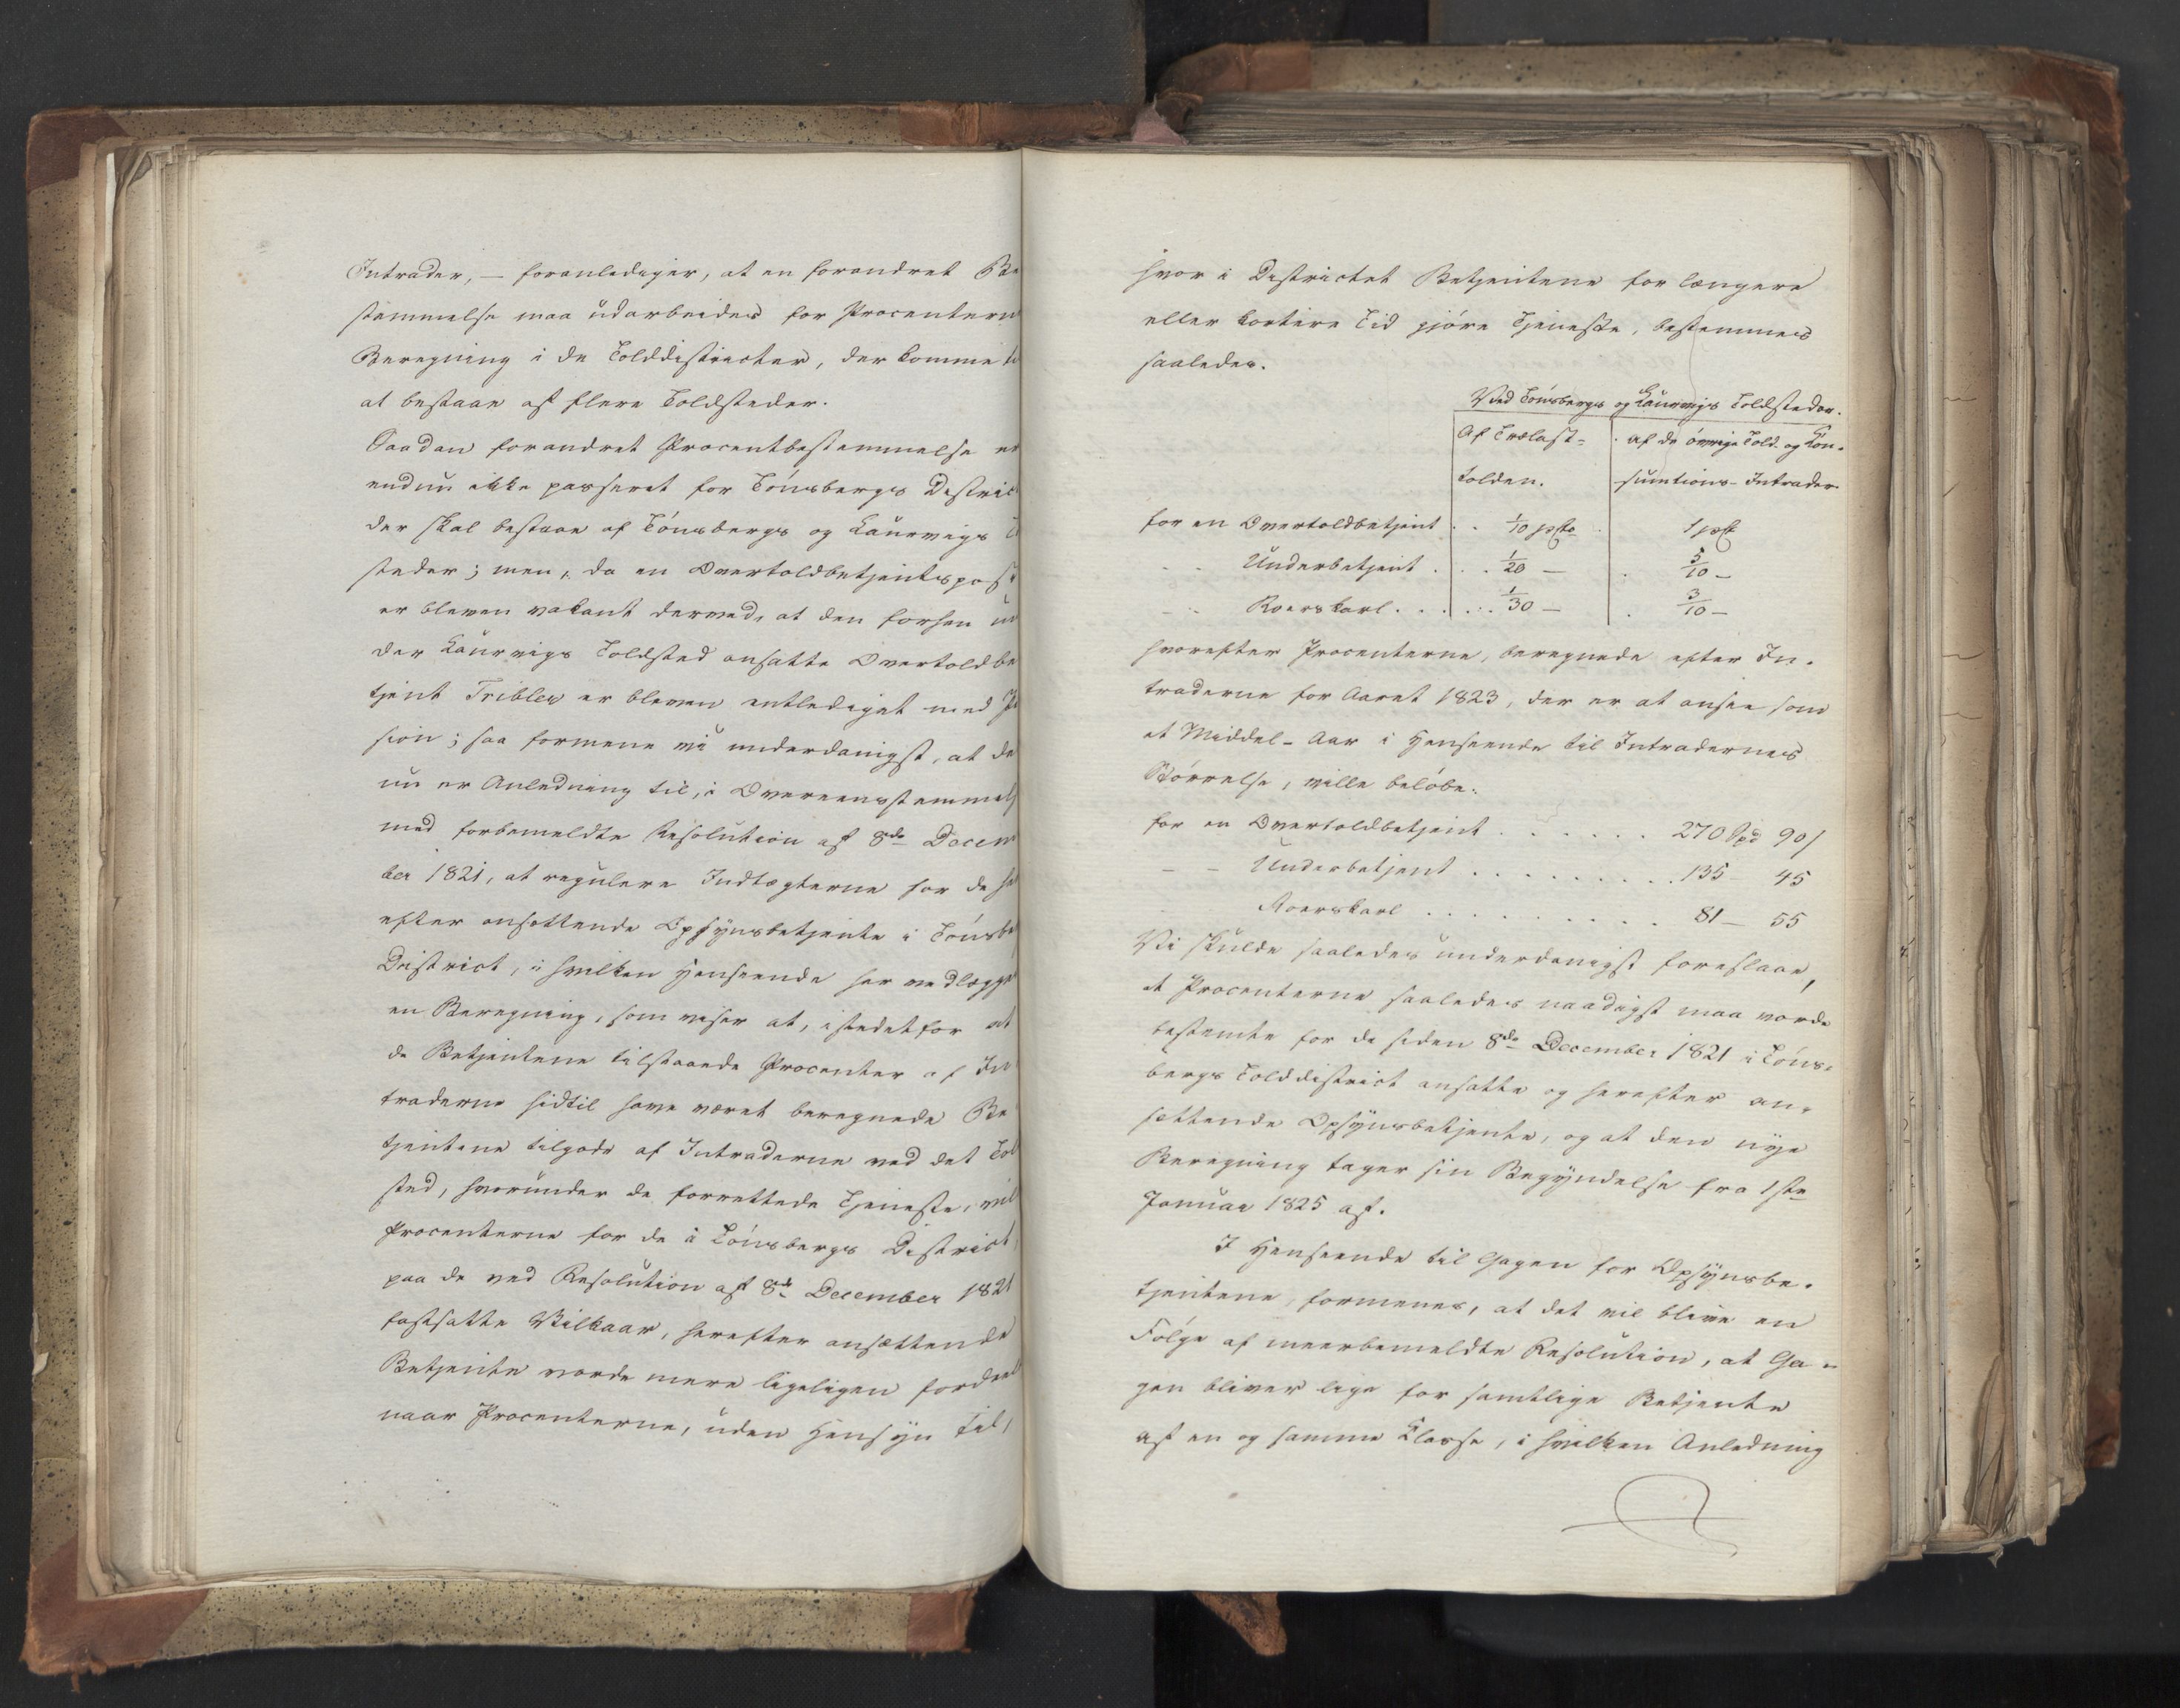 Intrader, — foranlediger, at en forandret Be
stemmelse maa udarbeides for Procenternes
Beregning i de Tolddistricter, der komme til
at bestaae af flere Toldsteder.
Saadan forandret Procentbestemmelse er
endnu ikke passeret for Tönsbergs District
der skal bestaae af Tönsbergs og Laurvigs
steder; men, da en Overtoldbetjentspost
er bleven vakant derved, at den forhen un
der Laurvigs Toldsted ansatte Overtoldbe
tjent Tribler er bleven entlediget med Pen
sion; saa formene vi underdanigst, at der
nu er Anledning til, i Overeensstemmelse
med forbemeldte Resolution af 8de Decem
ber 1821, at regulere Indtægterne for de her
efter ansættende Opsynsbetjente i Tönsbergs
District, i hvilken Henseende her vedlægges
en Beregning, som viser at, istedetfor at
de Betjentene tilstaaede Procenter af In
traderne hidtil have været beregnede Be
tjentene tilgode af Intraderne ved det Told
sted, hvorunder de forrettede Tjeneste, vil
Procenterne for de i Tönsbergs District,
paa de ved Resolution af 8de December 1821
fastsatte Vilkaar, herefter ansættende
Betjente vorde mere ligeligen fordeelt
naar Procenterne, uden Hensyn til,
hvor i Districtet Betjentene for længere
eller kortere Tid gjöre Tjeneste, bestemmes
saaledes.
Ved Tönsbergs og Laurvigs Toldsteder.
Af Trælast- af de övrige Told- og Kon-
tolden. sumtions-Intrader
for en Overtoldbetjent . . 1/10 pCto . 1 pCt
- - Underbetjent . . . 1/20 — . 5/10 -
- - Roerskarl . . . . . . 1/30 — . 3/10 -
hvorefter Procenterne, beregnede efter In-
traderne for Aaret 1823, der er at ansee som
et Middel-Aar i Henseende til Intradernes
Störrelse, ville belöbe:
for en Overtoldbetjent . . . . . . 270 Spd 90 s
- - Underbetjent . . . . . . . . . 135 - 45
Roerskarl . . . . . . . . . 81 - 55
Vi skulde saaledes underdanigst foreslaae,
at Procenterne saaledes naadigst maa vorde
bestemte for de siden 8de December 1821 i Töns-
bergs Tolddistrict ansatte og herefter an-
sættende Opsynsbetjente, og at den nye
Beregning tager sin Begyndelse fra 1ste
Januar 1825 af.
I Henseende til Gagen for Opsynsbe-
tjentene, formenes, at det vil blive en
Fölge af meerbemeldte Resolution, at Ga-
gen bliver lige for samtlige Betjente
af en og samme Klasse, i hvilken Anledning